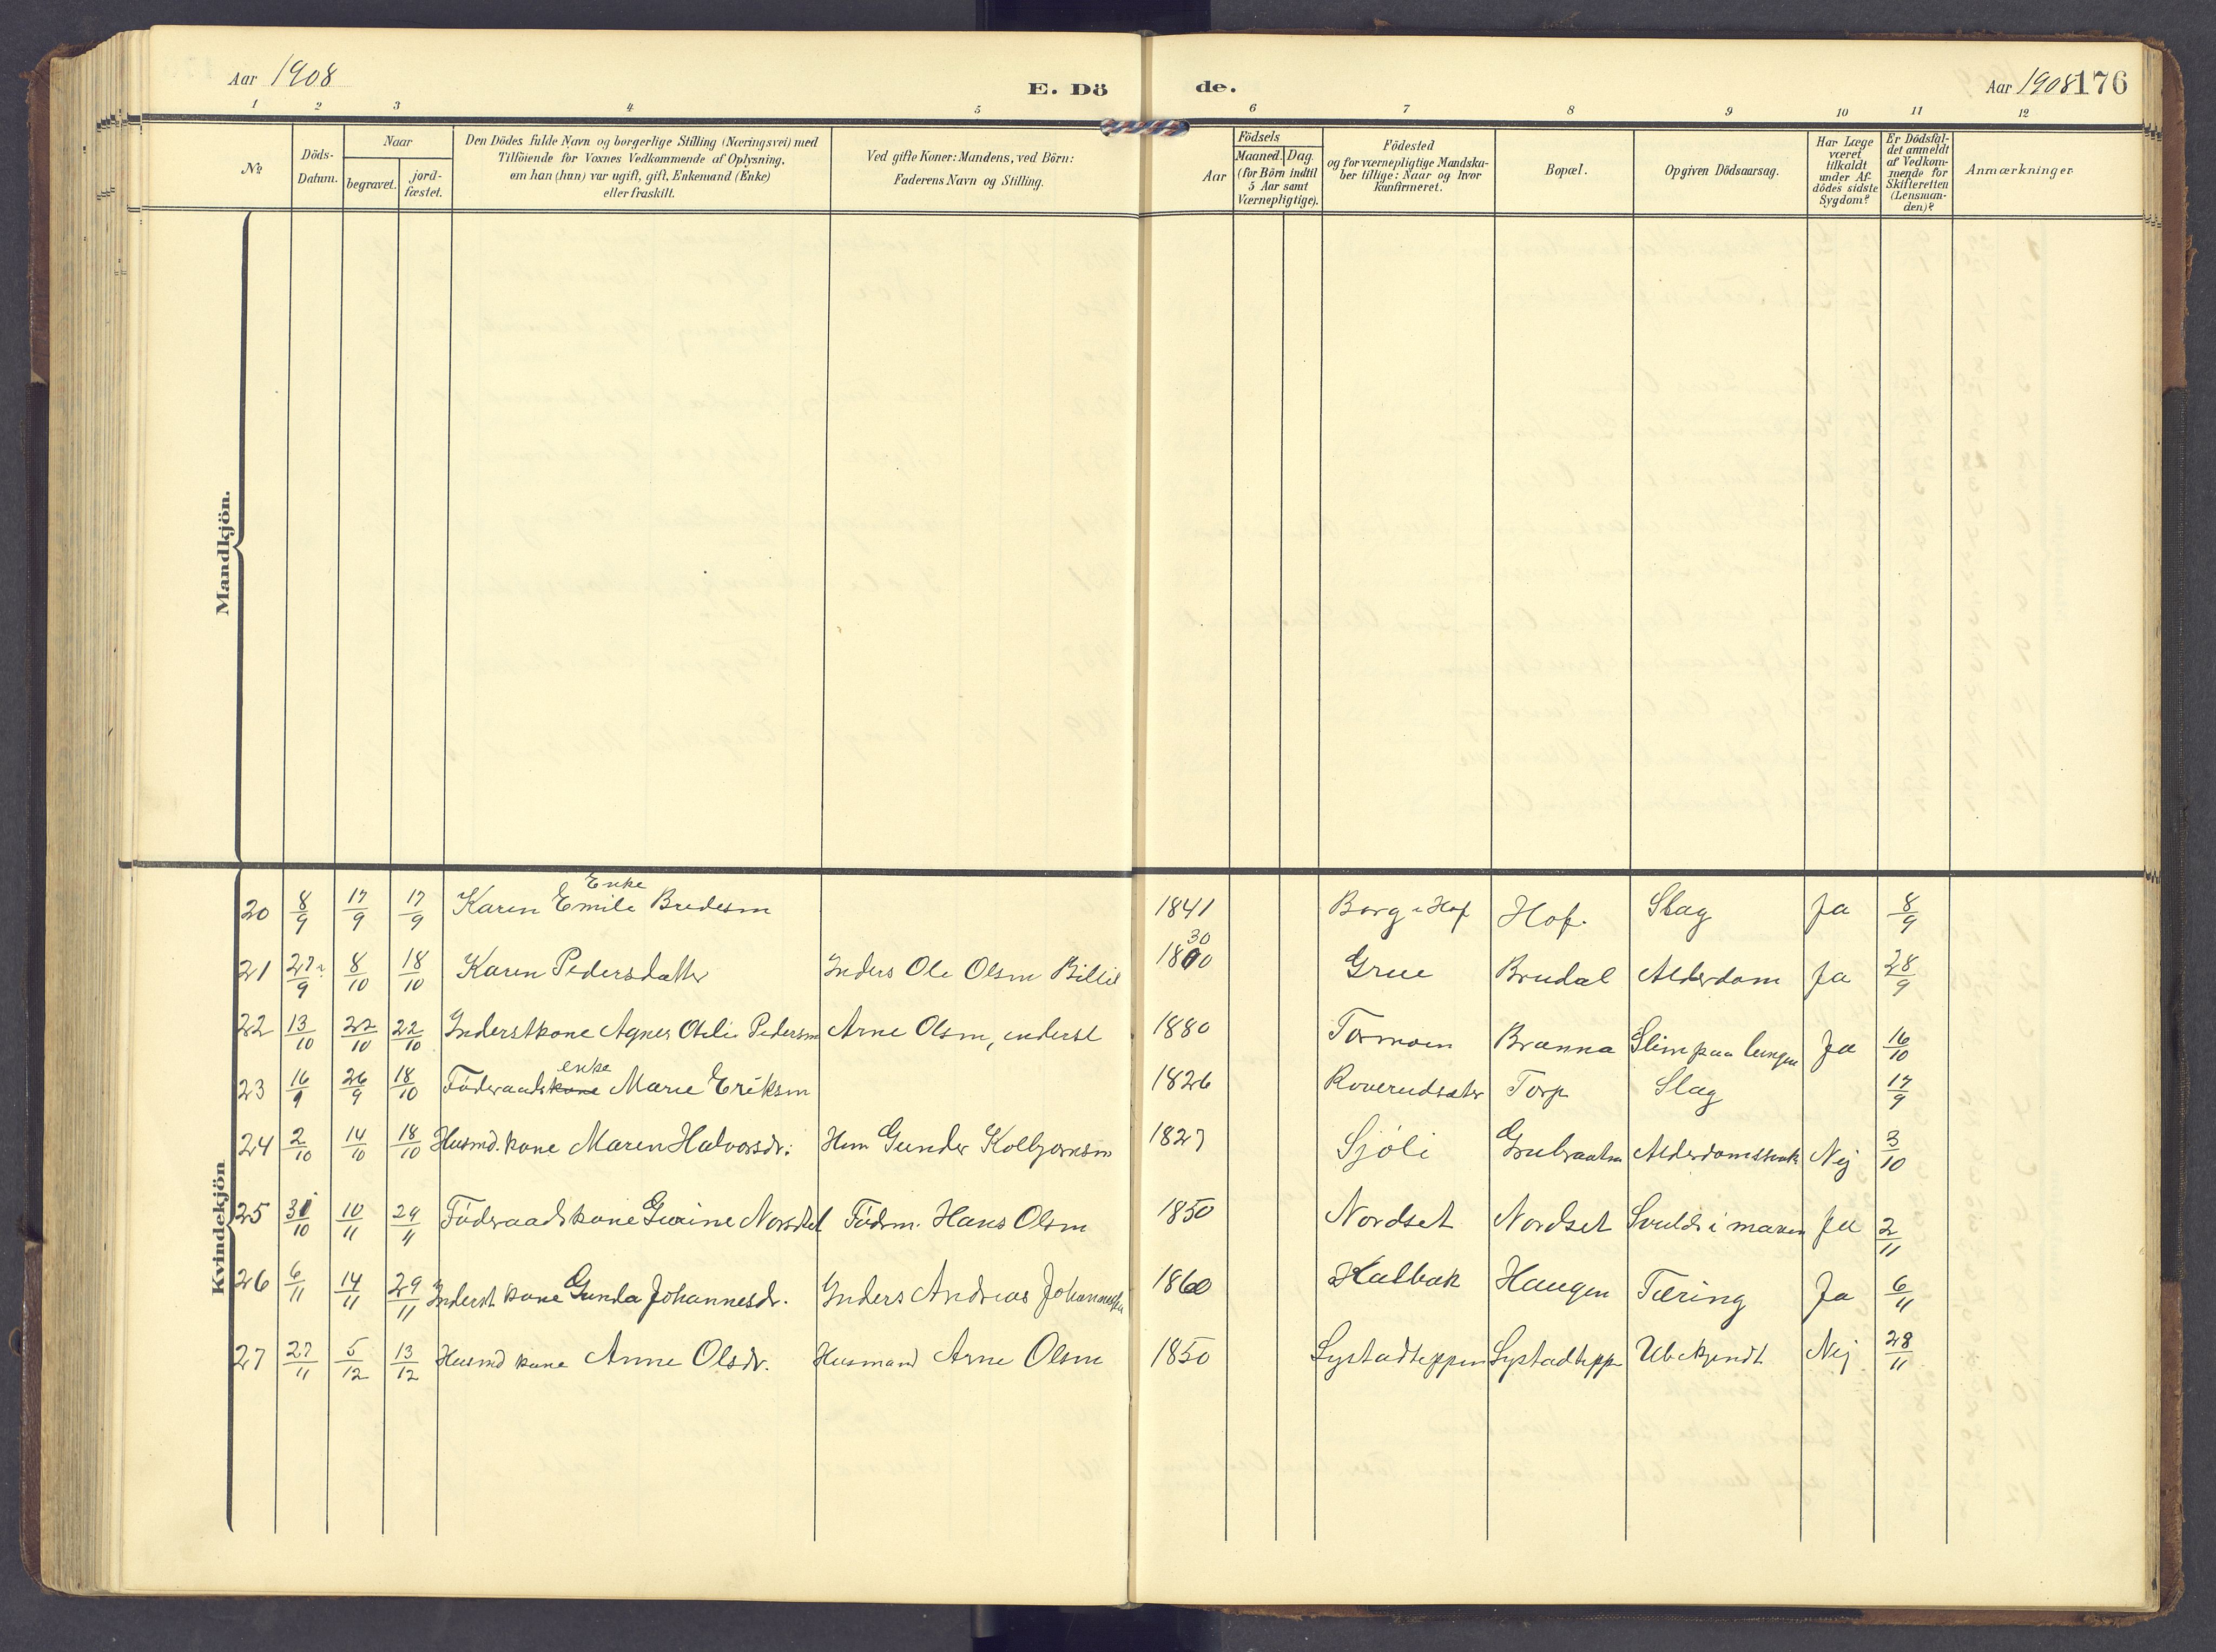 Aar 1908
E. Dö de.
Aar 1908 176
1 2 3 4 5 6 7 8 9 10 11 12
№
Döds-
Datum.
Naar
begravet.
jord-
fæstet.
Den Dödes fulde Navn og borgerlige Stilling (Næringsvei) med
Tilföiende for Voxnes Vedkommende af Oplysning,
om han (hun) var ugift, gift, Enkemand (Enke)
eller fraskilt.
Ved gifte Koner: Mandens, ved Börn:
Faderens Navn og Stilling.
Födsels
Aar
Maaned. Dag.
(for Börn indtil
5 Aar samt
Værnepligtige).
Födested
og for værnepligtige Mandska-
ber tillige: Naar og hvor
konfirmeret.
Bopæl.
Opgiven Dödsaarsag.
Har Læge
været
tilkaldt
under Af-
dödes sidste
Sygdom?
Er Dödsfal-
det anmeldt
af Vedkom-
mende for
Skifteretten
(Lensman-
den)?
Anmærkninger.
Mandkjön.
Kvindekjön
Enke
20 8/9 17/9 17/9 Karen Emilie Bredesen 1841 Borg i Hof Hof. Slag Ja 8/9
30
21 27/9 8/10 18/10 Karen Pedersdatter Inders Ole Olsen Billil 1800 Grue Brudal Alderdom Ja 28/9
22 13/10 22/10 22/10 Inderstkone Agnes Otilie Pedersen Arne Olsen, inderst 1880 Tormoen Brænna Slim paa lungen Ja 16/10
enke
23 16/9 26/9 18/10 Föderaadskone Marie Eriksen 1826 Roverudsæter Torp Slag 17/9
24 2/10 14/10 18/10 Husmd. kone Maren Halvorsdr. Hsm Gunder Kolbjornsen 1827 Sjöli Alderdomssvak Nej 3/10
25 31/10 10/11 29/11 Föderaadskone Gurine Nordset Födrm. Hans Olsen 1850 Nordset Nordset Svulst i maven Ja 2/11
26 6/11 14/11 29/11 Inderst kone Gunda Johannesdr. Inders Andreas Johannesen 1860 Kalbak Haugen Tæring Ja 6/11
27 27/11 5/12 13/12 Husmd kone Anne Olsdr. Husmand Arne Olsen 1850 Lystadteppen Lystadtepp Ubekjendt Nej 28/11